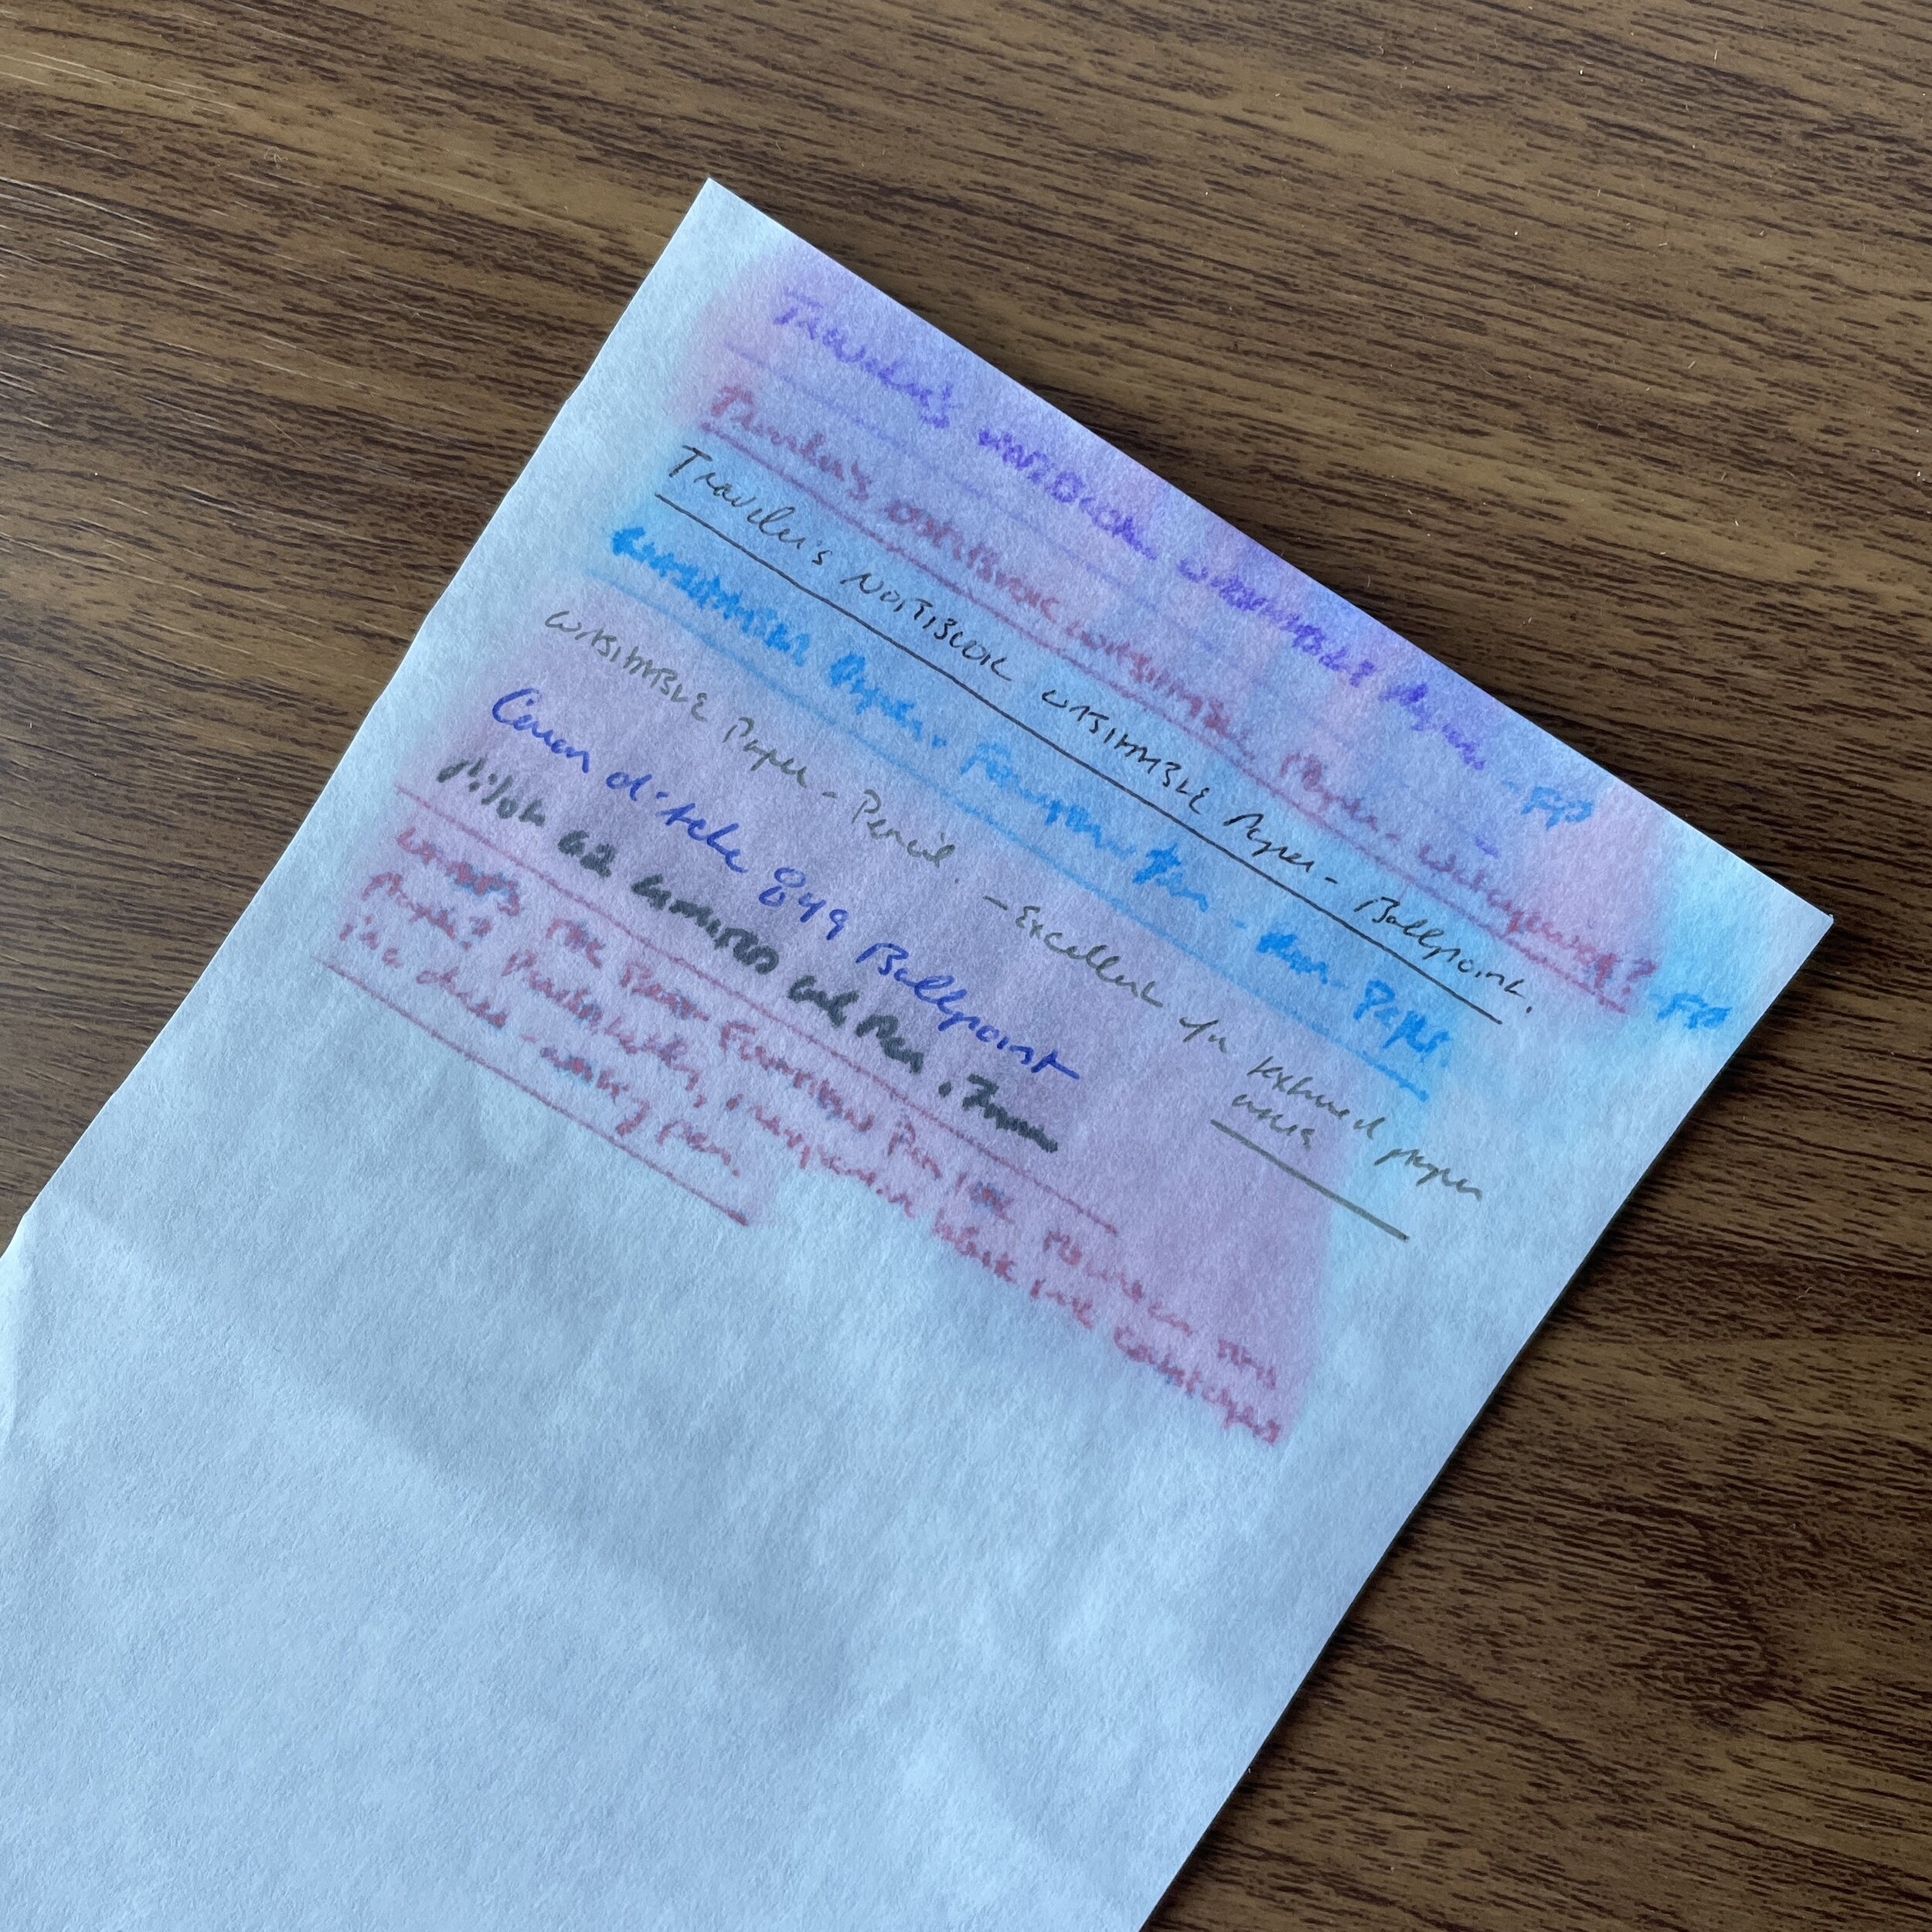 Traveler's Notebook Washable Paper - FP
Traveler's Notebook Washable Paper - Waterproof? - FP
Traveler's Notebook Washable Paper - Ballpoint.
Washable Paper - Fountain Pen - Paper.
Washable Paper - Pencil. - Excellent for textured paper
Caran d'Ache 849 Ballpoint
Pilot G2 Limited Gel Pen .7mm
What's the Best Fountain Pen Ink to use on this
Paper? Probably, inexpensive black ink cartridges
in a dried - pen.